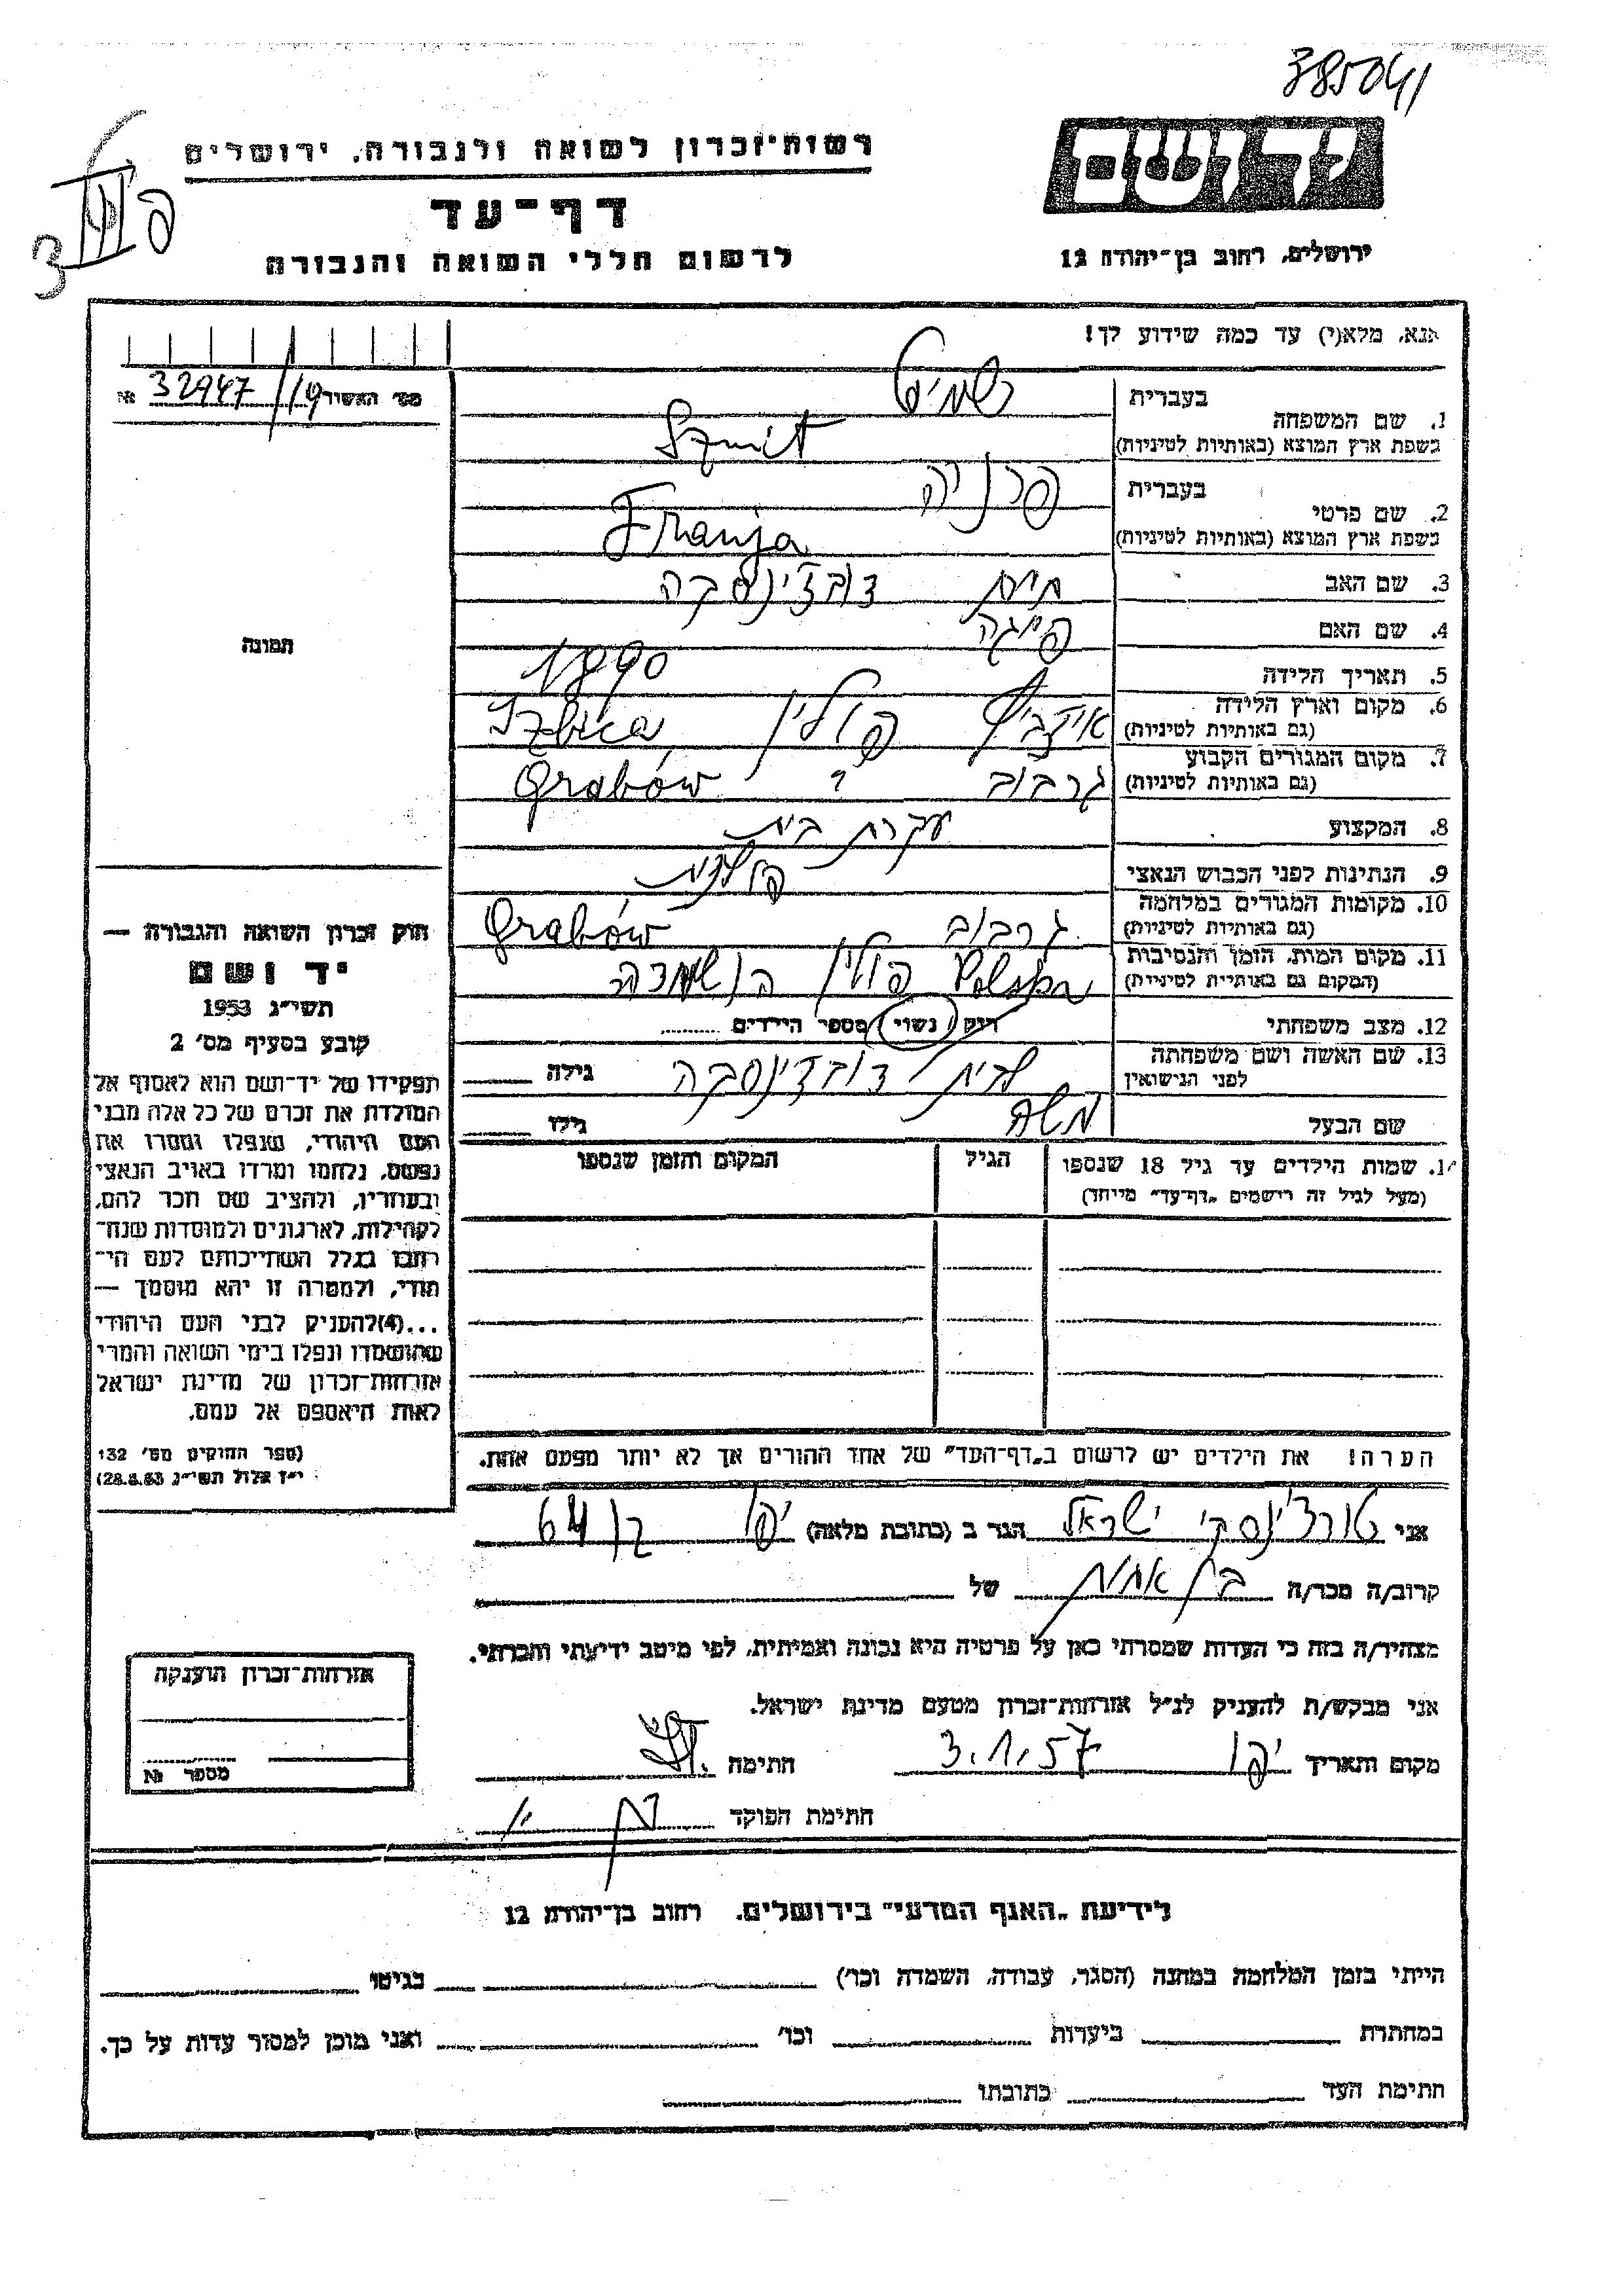 385041
יד ושם
ירושלים, רחוב בן־יהודה 12
רשות־זכרון לשואה ולגבורה, ירושלים
דף־עד
לרשום חללי השואה והגבורה
אנא, מלא(י) עד כמה שידוע לך!
מס׳ האשיר 32947/19 №
1. שם המשפחה בעברית שמיט
בשפת ארץ המוצא (באותיות לטיניות) Szmit
2. שם פרטי בעברית פרניה
בשפת ארץ המוצא (באותיות לטיניות) Franja
3. שם האב חיים
4. שם האם פייגה
5. תאריך הלידה 1890
6. מקום וארץ הלידה (גם באותיות לטיניות) פולין Izbica
7. מקום המגורים הקבוע (גם באותיות לטיניות) גרבוב Grabów
8. המקצוע עקרת בית
9. הנתינות לפני הכבוש הנאצי פולנית
10. מקומות המגורים במלחמה (גם באותיות לטיניות) גרבוב Grabów
11. מקום המות, הזמן והנסיבות (המקום גם באותיות לטיניות) Polska פולין הושמדה
12. מצב משפחתי רווק נשוי מספר הילדים
13. שם האשה ושם משפחתה לפני הנישואין לבית גילה
שם הבעל משה גילו
14. שמות הילדים עד גיל 18 שנספו הגיל המקום והזמן שנספו
(מעל לגיל זה רישמים „דף־עד״ מייחד)
תמונה
חוק זכרון השואה והגבורה —
יד ושם
תשי״ג 1953
קובע בסעיף מס׳ 2
תפקידו של יד־ושם הוא לאסוף אל
המולדת את זכרם של כל אלה מבני
העם היהודי, שנפלו ומסרו את
נפשם, נלחמו ומרדו באויב הנאצי
ובעוזריו, ולהציב שם וזכר להם,
לקהילות, לארגונים ולמוסדות שנח־
רבו בגלל השתייכותם לעם הי־
הודי, ולמטרה זו יהא מוסמך —
...(4)להעניק לבני העם היהודי
שהושמדו ונפלו בימי השואה והמרי
אזרחות־זכרון של מדינת ישראל
לאות היאספם אל עמם.
(ספר החוקים מס׳ 132
י״ז אלול תשי״ג 28.8.53)
הערה! את הילדים יש לרשום ב„דף־העד״ של אחד ההורים אך לא יותר מפעם אחת.
אני ישראל הגר ב (כתובת מלאה) יפו 64
קרוב/ה מכר/ה בן אחות של
מצהיר/ה בזה כי העדות שמסרתי כאן על פרטיה היא נכונה ואמיתית, לפי מיטב ידיעתי והכרתי.
אני מבקש/ת להעניק לנ״ל אזרחות־זכרון מטעם מדינת ישראל.
מקום ותאריך יפו 3.1.57 חתימה
חתימת הפוקד
אזרחות־זכרון הוענקה
מספר №
לידיעת „האגף המדעי״ בירושלים, רחוב בן־יהודה 12
הייתי בזמן המלחמה במחנה (הסגר, עבודה, השמדה וכו׳) בגיטו
במחתרת ביערות וכו׳ ואני מוכן למסור עדות על כך.
חתימת העד כתובתו